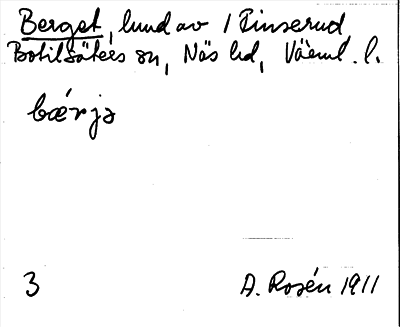 Berget, lund av 1 Finserud
Botilsäters sn, Näs hd, Värml. l.
bǽrjə
3 A. Rosén 1911